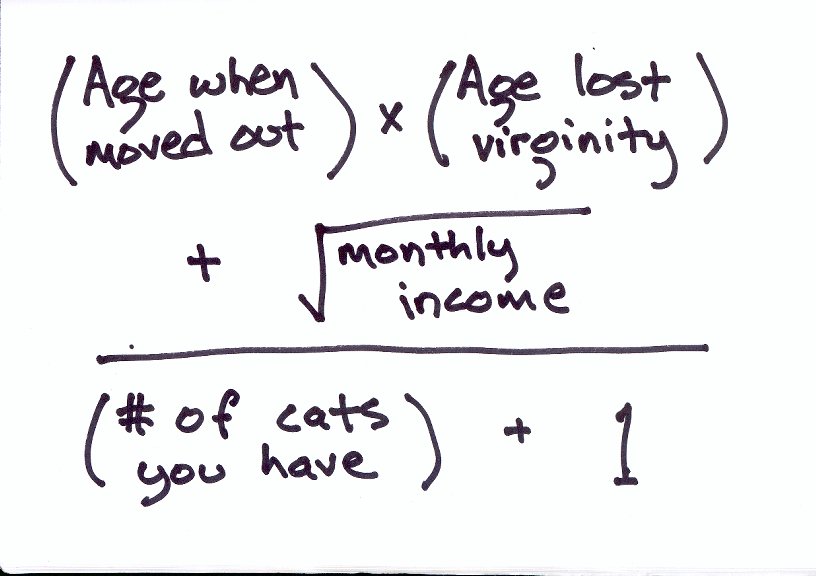 (Age when moved out) x (Age lost virginity)
+ √monthly income
(# of cats you have) + 1